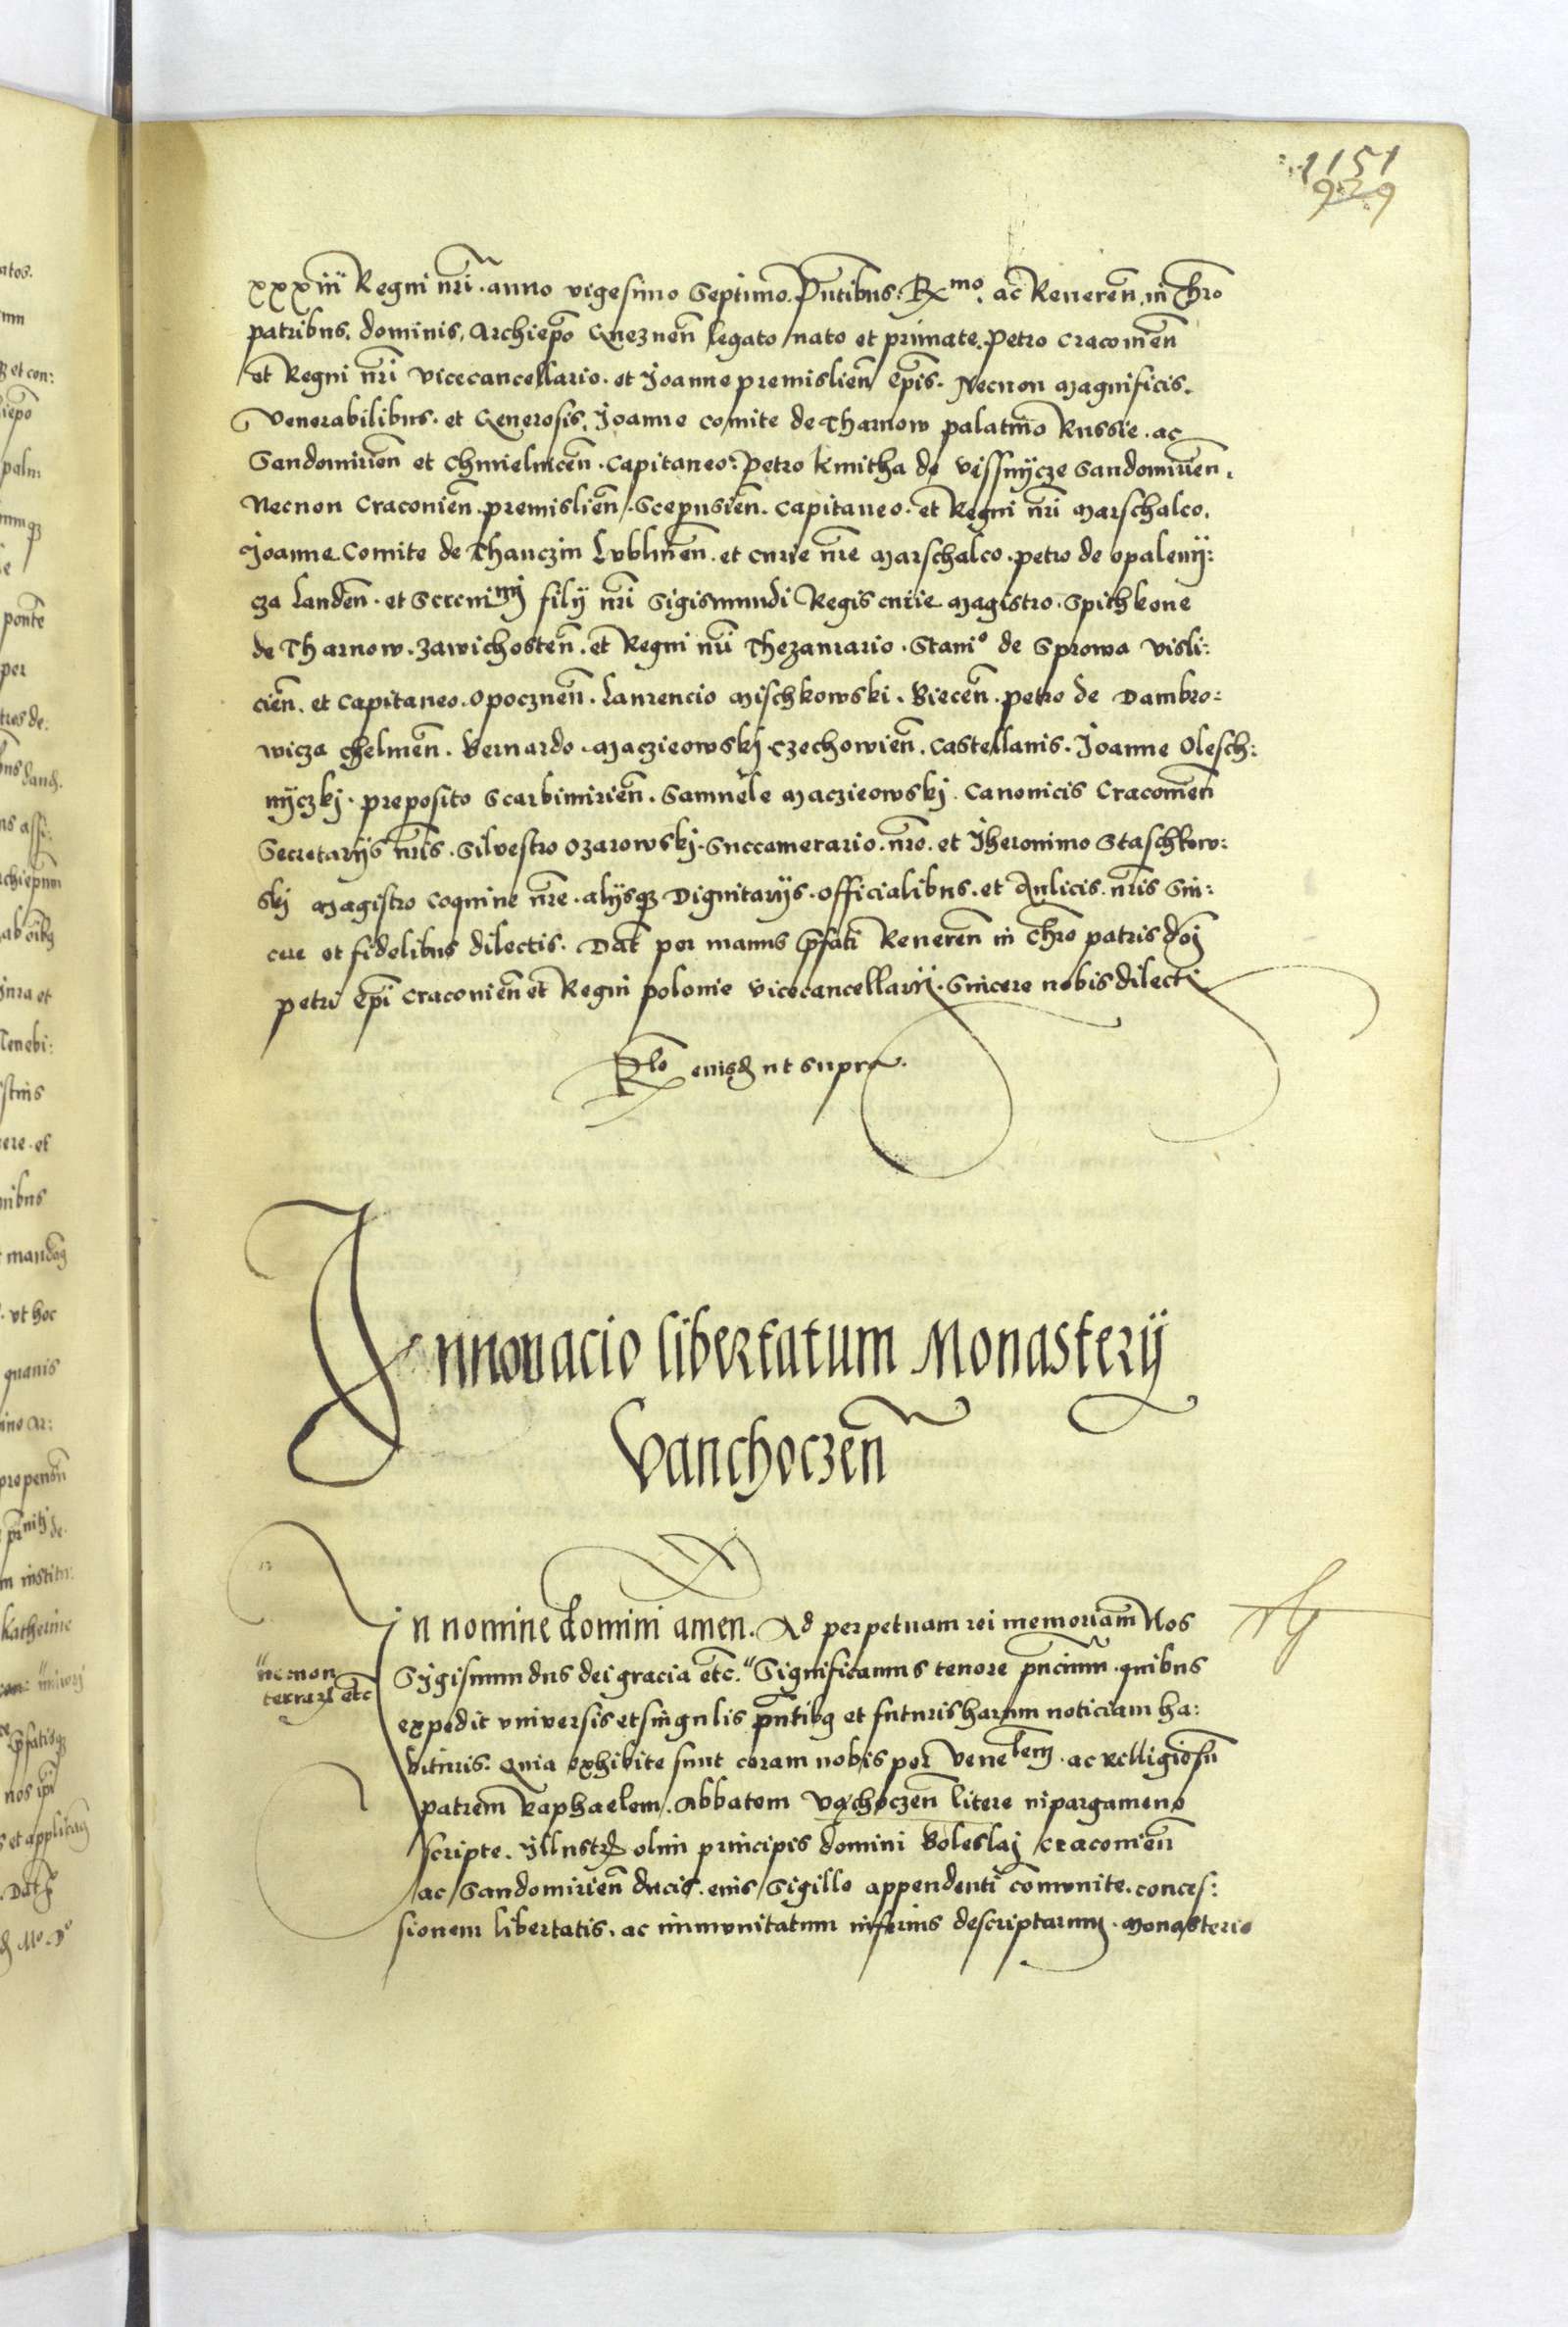 1151
929
xxxiii Regni nri anno vigesimo Septimo. Pntibus: Rmo. ac Reueren. in Chro
patribus. dominis. Archiepo Gneznen legato nato et primate. Petro Cracouien
et Regni nri Vicecancellario. et Joanne premislien Epis. Necnon Magnificis.
Venerabilibus. et Generosis. Joanne comite de Tharnow palatino Russie. ac
Sandomirien et Chmielnicen. Capitaneo: Petro Kmitha de Vissnycze Sandomirien.
Necnon Cracouien. premislien. Scepusien. Capitaneo. et Regni nri Marschalco.
Joanne Comite de Thanczin Lublinen. et curie nre Marschalco. petro de Opaleny:
cza Landen. et Serenimi filij nri Sigismundi Regis curie Magistro. Spithkone
de Tharnow. Zawichosten. et Regni nri Thezaurario. Stanio de Sprowa Visli:
cien. et Capitaneo. Opocznen. Laurencio Mischkowski. Biecen. petro de Dambro:
wicza Chelmen. Bernardo. Maczieowskj. Czechowien. Castellanis. Joanne Olesch:
nyczkj. preposito Scarbimirien. Samuele Maczieowskj. Canonicis Cracouien
Secretarijs nris. Silvestro Ozarowskj. Succamerario. nro. et Jheronimo Staschkow:
skj Magistro Coquine nre. alijsqz Dignitarijs. officialibus. et Aulicis. nris Sin:
cere et fidelibus dilectis. Dat per manus pfati Reueren in Chro patris dni
petri Epi Cracouien et Regni polonie Vicecancellarij. Sincere nobis dilecti
Rlo eiusd ut supra.
Innouacio libertatum Monasterij
Vanchoczen
In nomine domini amen. Ad perpetuam rei memoriam Nos
Sygismundus dei gracia etc. Significamus tenore pncium. quibus
necnon
terrarz etc
expedit vniuersis et singulis pntibq et futuris harum noticiam ha:
bituris. Quia exhibite sunt coram nobis per Venelem. ac relligiosu
patrem Raphaelem. Abbatem Vachoczen litere in pargameno
scripte. Illustr olim principis domini Boleslaj Cracouien
ac Sandomirien ducis. eius Sigillo appendenti comunite. conces:
sionem libertatis. ac immunitatum inferius descriptarum. Monasterio